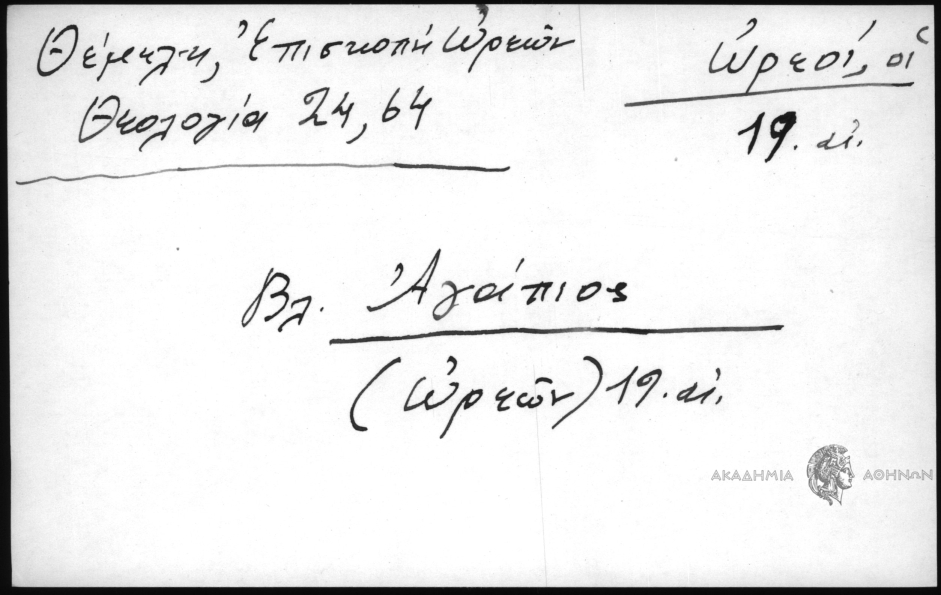 Θέμελη, Ἐπισκοπή Ὠρεῶν
Θεολογία 24, 64
Ὠρεοί, οἱ
19. αἰ.
Βλ. Ἀγάπιος
(Ὠρεῶν) 19. αἰ.
ΑΚΑΔΗΜΙΑ ΑΘΗΝΩΝ